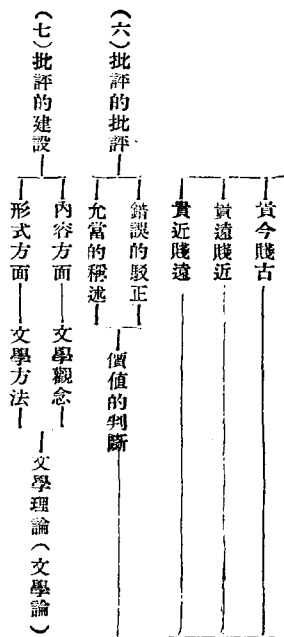 貴今賤古
貴遠賤近
貴近賤遠
（六）批評的批評
錯誤的駁正
允當的稱述
價值的判斷
（七）批評的建設
內容方面
文學觀念
形式方面
文學方法
文學理論（文學論）